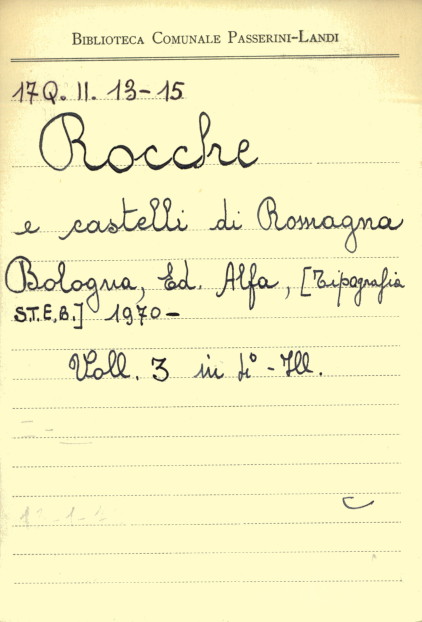 BIBLIOTECA COMUNALE PASSERINI-LANDI
17Q. II. 13-15
Rocche
e castelli di Romagna
Bologna, Ed. Alfa, [Tipografia
S.T.E.B.] 1970-
Voll. 3 in 4° - Ill.